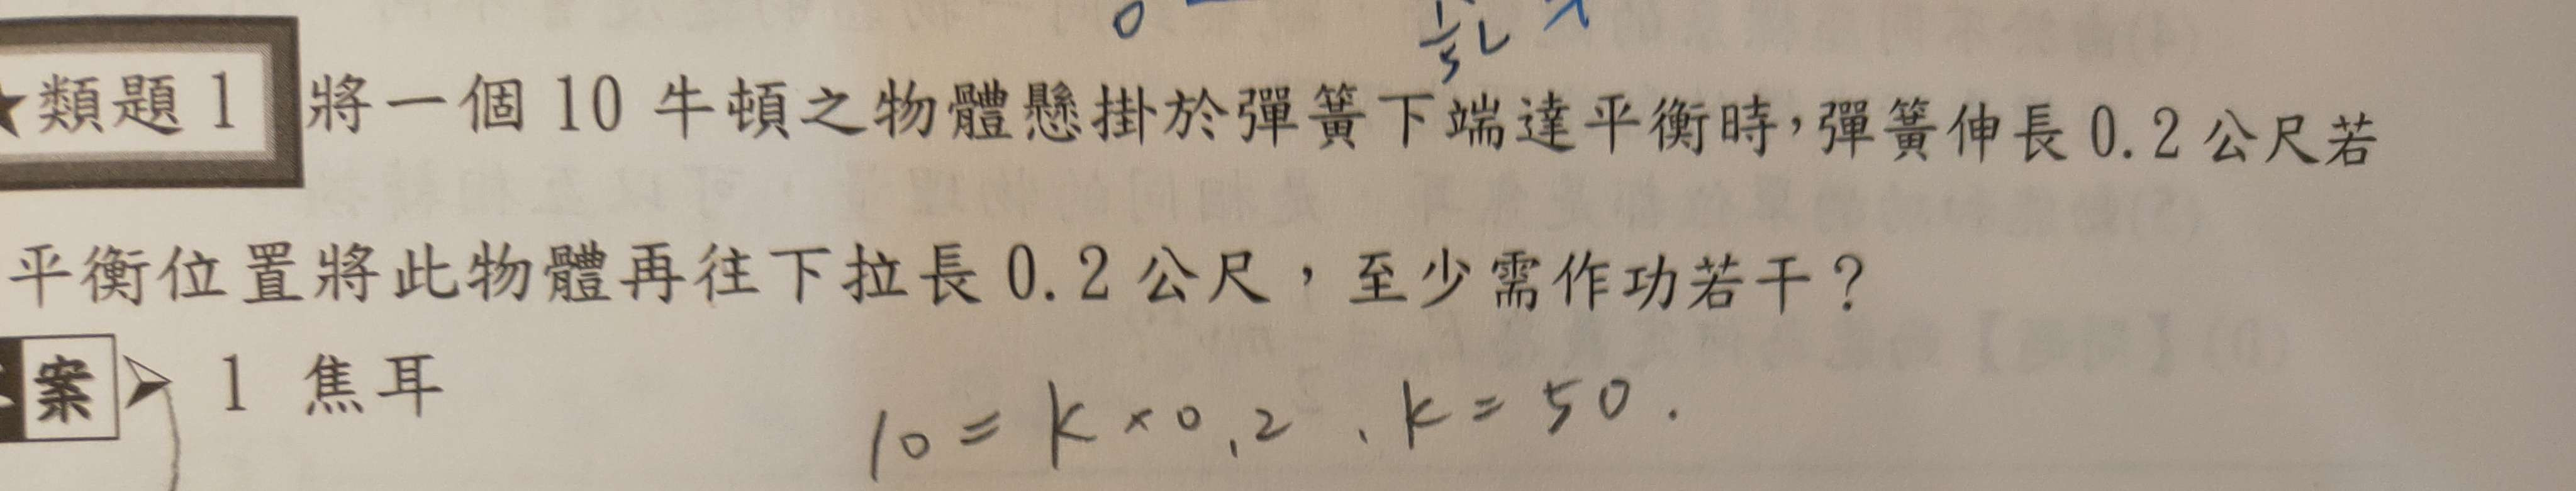 0 1/5 L x
★類題1 將一個10牛頓之物體懸掛於彈簧下端達平衡時,彈簧伸長0.2公尺若
平衡位置將此物體再往下拉長0.2公尺,至少需作功若干?
案 1 焦耳
10 = k × 0.2 、 k = 50 .